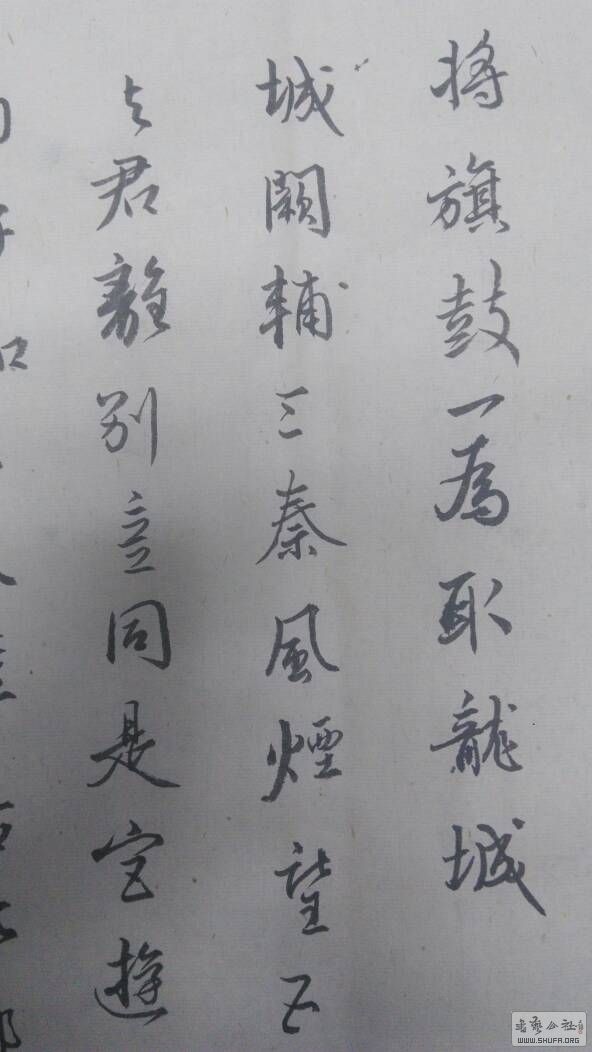 将旗鼓一為取龍城
城闕輔三秦風煙望五
与君離别意同是宦遊
書藝公社
WWW.SHUFA.ORG